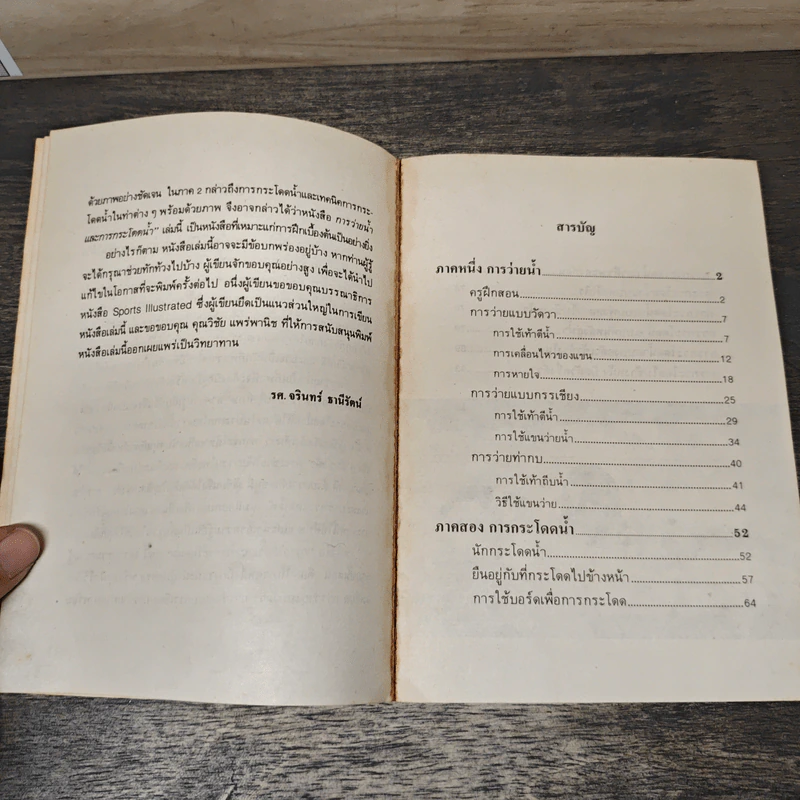 ด้วยภาพอย่างชัดเจน ในภาค 2 กล่าวถึงการกระโดดน้ำและเทคนิคการกระ-
โดดน้ำในท่าต่าง ๆ พร้อมด้วยภาพ จึงอาจกล่าวได้ว่าหนังสือ การว่ายน้ำ
และการกระโดดน้ำ" เล่มนี้ เป็นหนังสือที่เหมาะแก่การฝึกเบื้องต้นเป็นอย่างยิ่ง
อย่างไรก็ตาม หนังสือเล่มนี้อาจจะมีข้อบกพร่องอยู่บ้าง หากท่านผู้รู้
จะได้กรุณาช่วยทักท้วงไปบ้าง ผู้เขียนจักขอบคุณอย่างสูง เพื่อจะได้นำไป
แก้ไขในโอกาสที่จะพิมพ์ครั้งต่อไป อนึ่งผู้เขียนขอขอบคุณบรรณาธิการ
หนังสือ Sports Illustrated ซึ่งผู้เขียนยึดเป็นแนวส่วนใหญ่ในการเขียน
หนังสือเล่มนี้ และขอขอบคุณ คุณวิชัย แพร่พานิช ที่ให้การสนับสนุนพิมพ์
หนังสือเล่มนี้ออกเผยแพร่เป็นวิทยาทาน
รศ. จรินทร์ ธานีรัตน์
สารบัญ
ภาคหนึ่ง การว่ายน้ำ 2
ครูฝึกสอน 2
การว่ายแบบวัดวา 7
การใช้เท้าตีน้ำ 7
การเคลื่อนไหวของแขน 12
การหายใจ 18
การว่ายแบบกรรเชียง 25
การใช้เท้าตีน้ำ 29
การใช้แขนว่ายน้ำ 34
การว่ายท่ากบ 40
การใช้เท้าถีบน้ำ 41
วิธีใช้แขนว่าย 44
ภาคสอง การกระโดดน้ำ 52
นักกระโดดน้ำ 52
ยืนอยู่กับที่กระโดดไปข้างหน้า 57
การใช้บอร์ดเพื่อการกระโดด 64